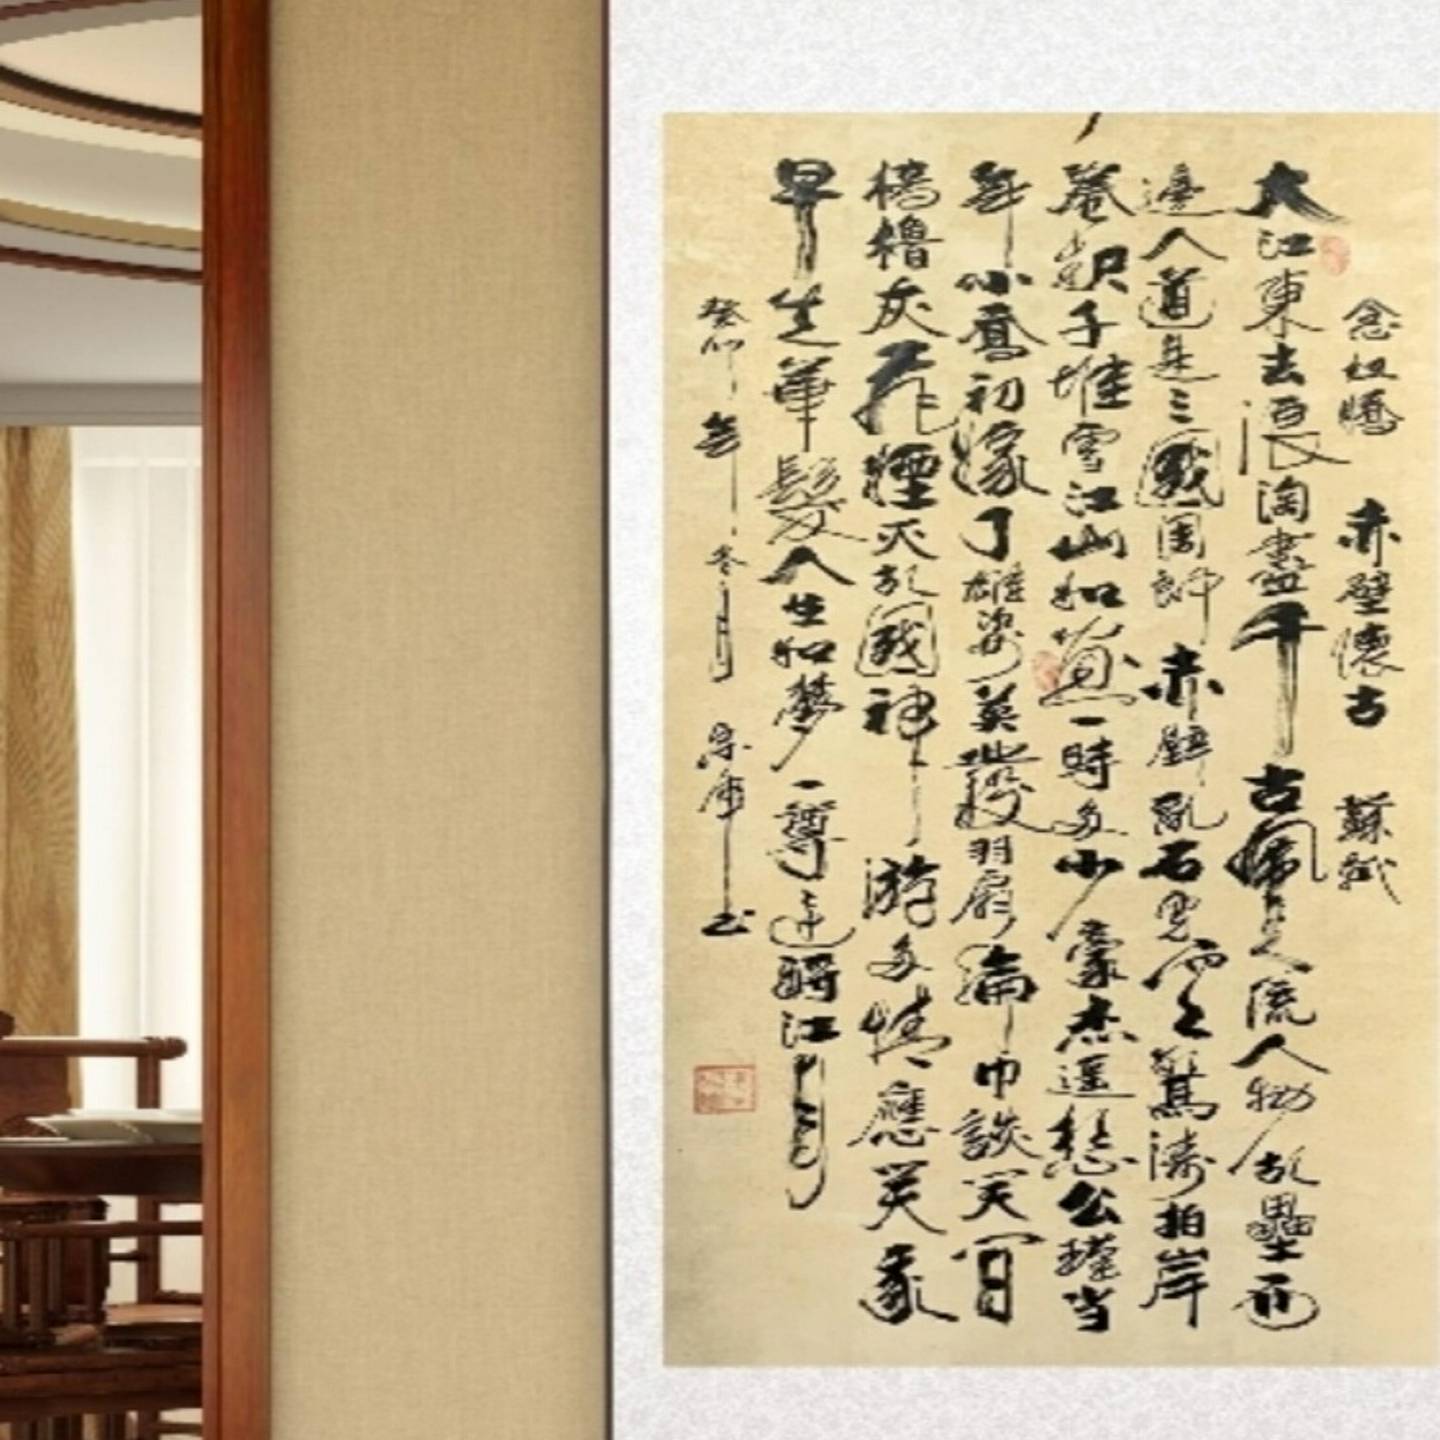 念奴嬌 赤壁懷古 蘇軾
大江東去浪淘盡千古風流人物故壘西
邊人道是三國周郎赤壁亂石穿空驚濤拍岸
卷起千堆雪江山如畫一時多少豪杰遥想公瑾当
年小喬初嫁了雄姿英發羽扇綸巾談笑間
檣櫓灰飛煙灭故國神游多情應笑我
早生華髮人生如夢一尊还酹江月
癸卯年冬月 书